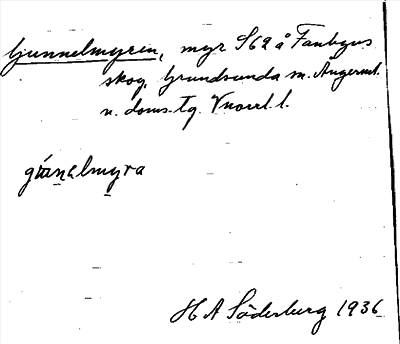 Gunnelmyren, myr S62 å Fanbyns
skog, Grundsunda sn. Ångerml.
n. doms. tg. Vnorrl. l.
gúnelmyra
H A Söderberg 1936